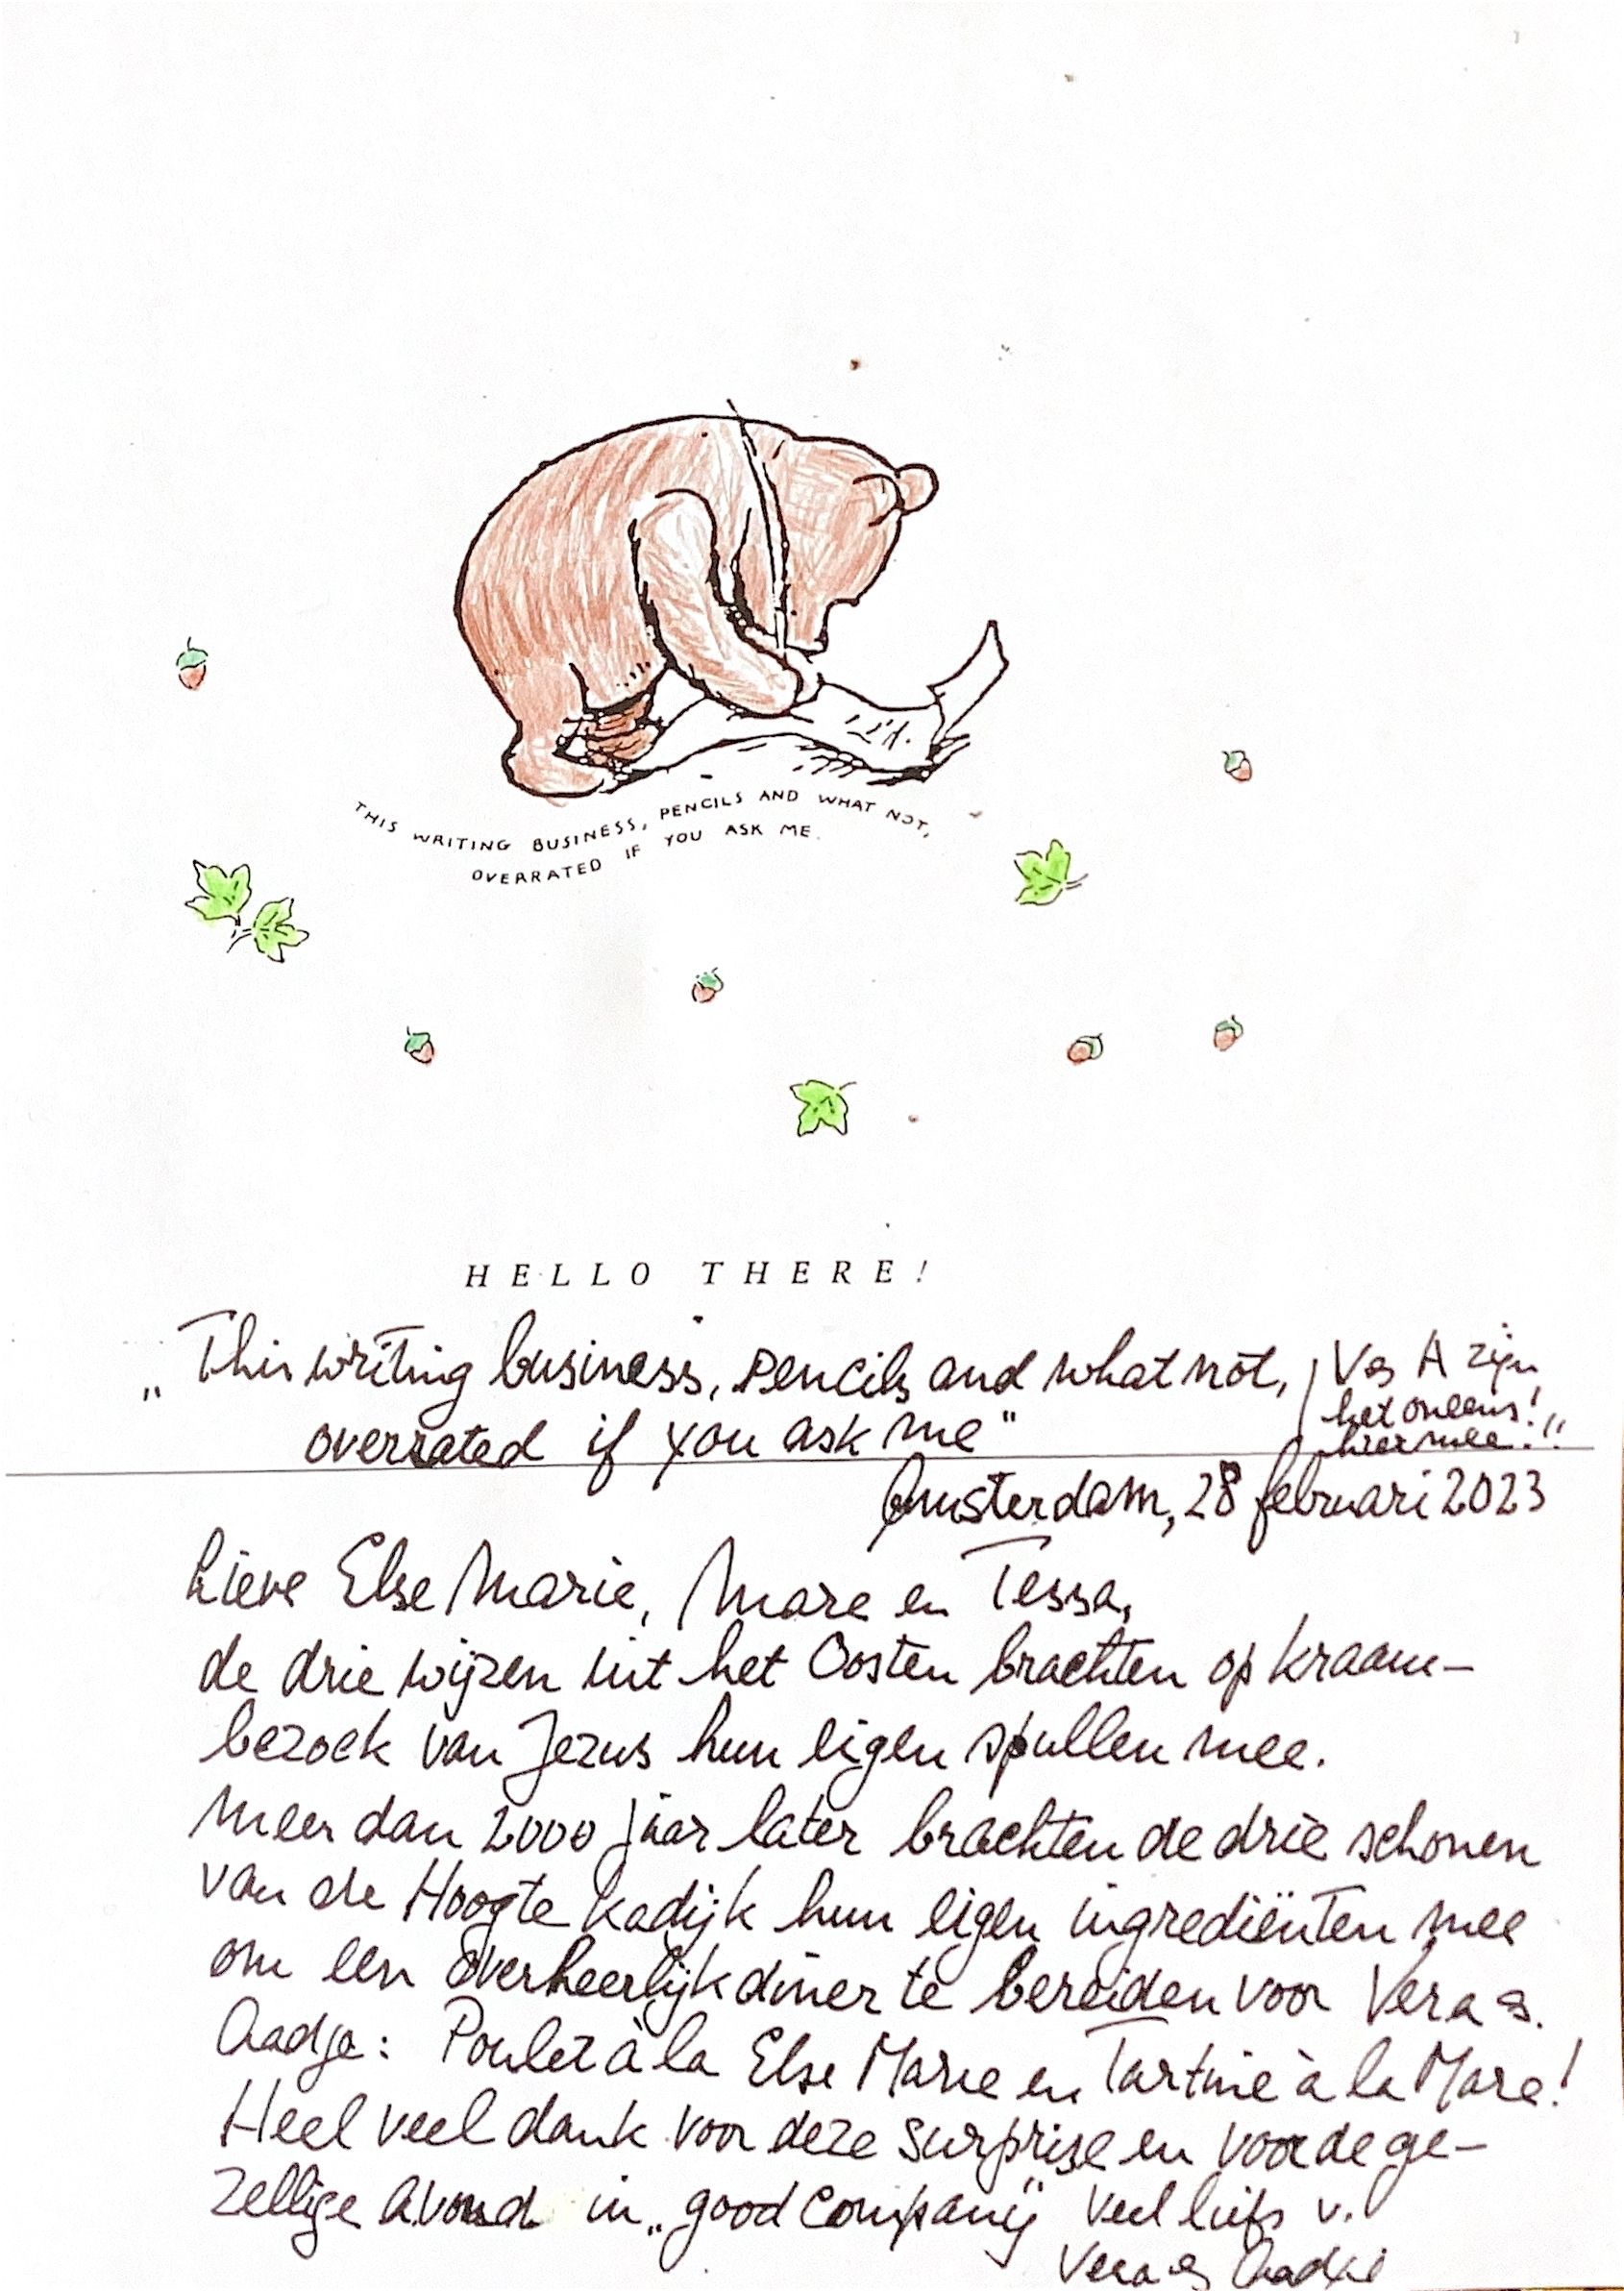 THIS WRITING BUSINESS, PENCILS AND WHAT NOT,
OVERRATED IF YOU ASK ME.
HELLO THERE!
„This writing business, pencils and what not,
overrated if you ask me"
V en A zijn
het oneens!
hiermee!"
Amsterdam, 28 februari 2023
Lieve Else Marie, Mare en Tessa,
de drie wijzen uit het Oosten brachten op kraam-
bezoek van Jezus hun eigen spullen mee.
Meer dan 2000 jaar later brachten de drie schonen
van de Hoogte Kadijk hun eigen ingrediënten mee
om een overheerlijk diner te bereiden voor Vera en
Aadje: Poulet à la Else Marie en Tartine à la Mare!
Heel veel dank voor deze surprise en voor de ge-
zellige avond in „good company" Veel liefs v.
Vera en Aadje